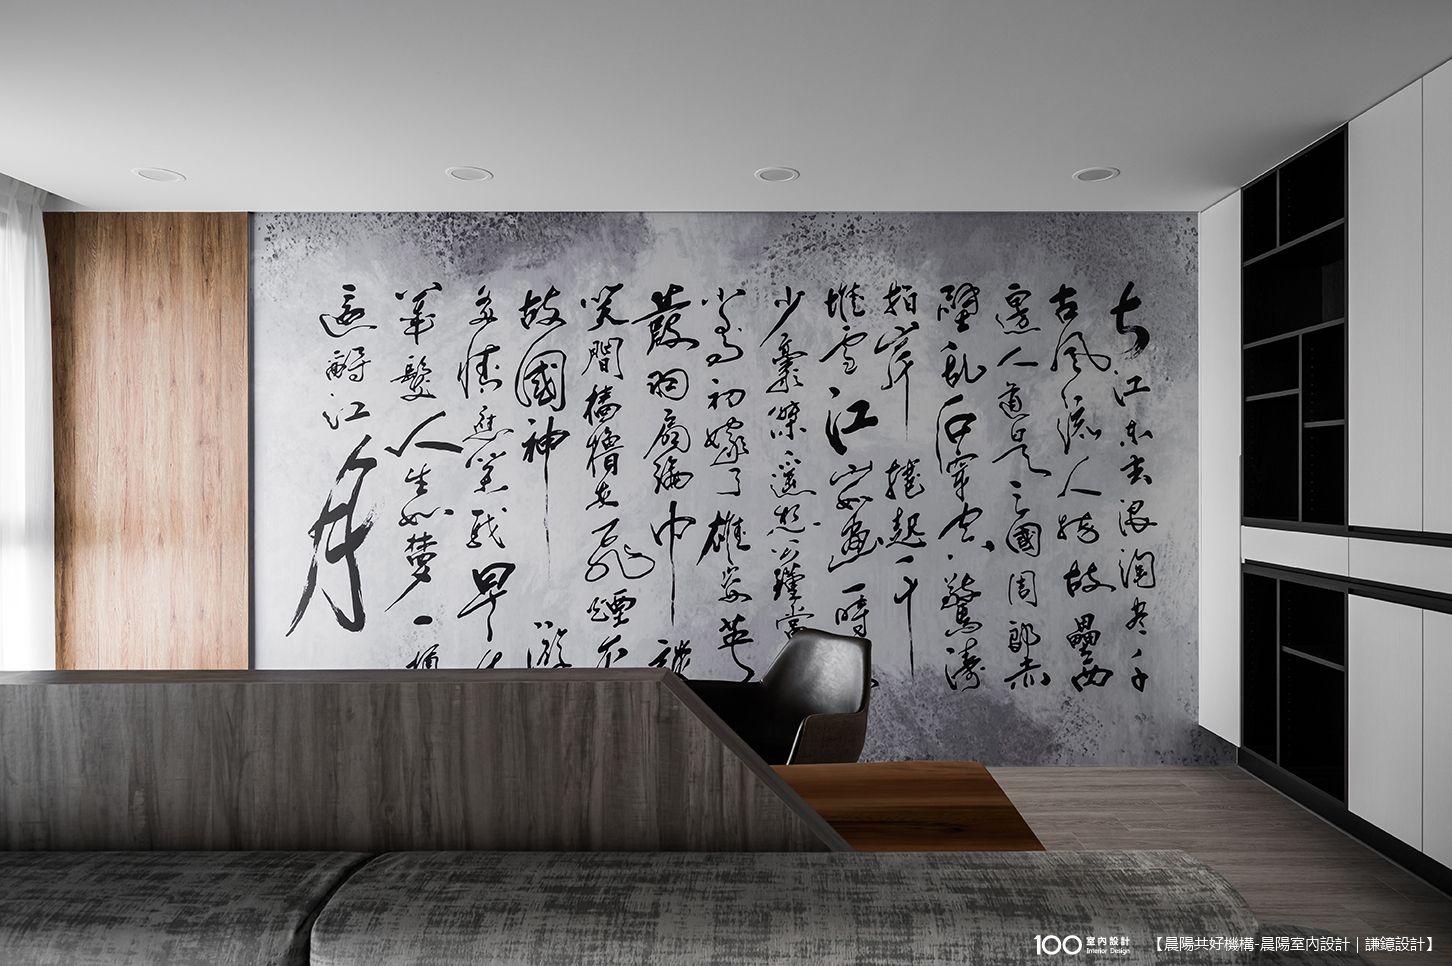 大江東去浪淘盡千
古風流人物故壘西
邊人道是三國周郎赤
壁亂石穿空驚濤
拍岸捲起千
堆雪江山如畫一時
少豪傑遙想公瑾當
小喬初嫁了雄姿英
發羽扇綸巾談
笑間檣櫓灰飛煙
故國神游
多情應笑我早生
華髮人生如夢一樽
還酹江月
100 室內設計 Interior Design 【晨陽共好機構-晨陽室內設計｜謙鐿設計】